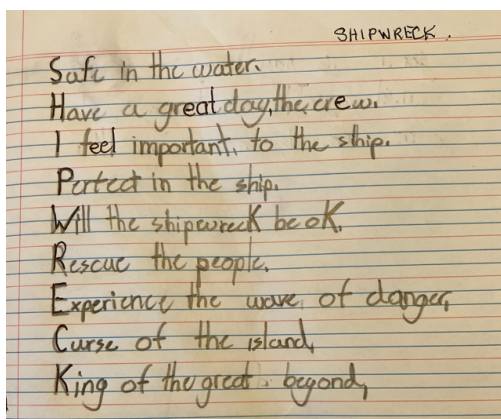 SHIPWRECK.
Safe in the water.
Have a great day, the crew.
I feel important, to the ship.
Pertect in the ship.
Will the shipwrecK be oK.
Rescue the people.
Experience the wave of danger,
Curse of the island,
King of the great beyond,